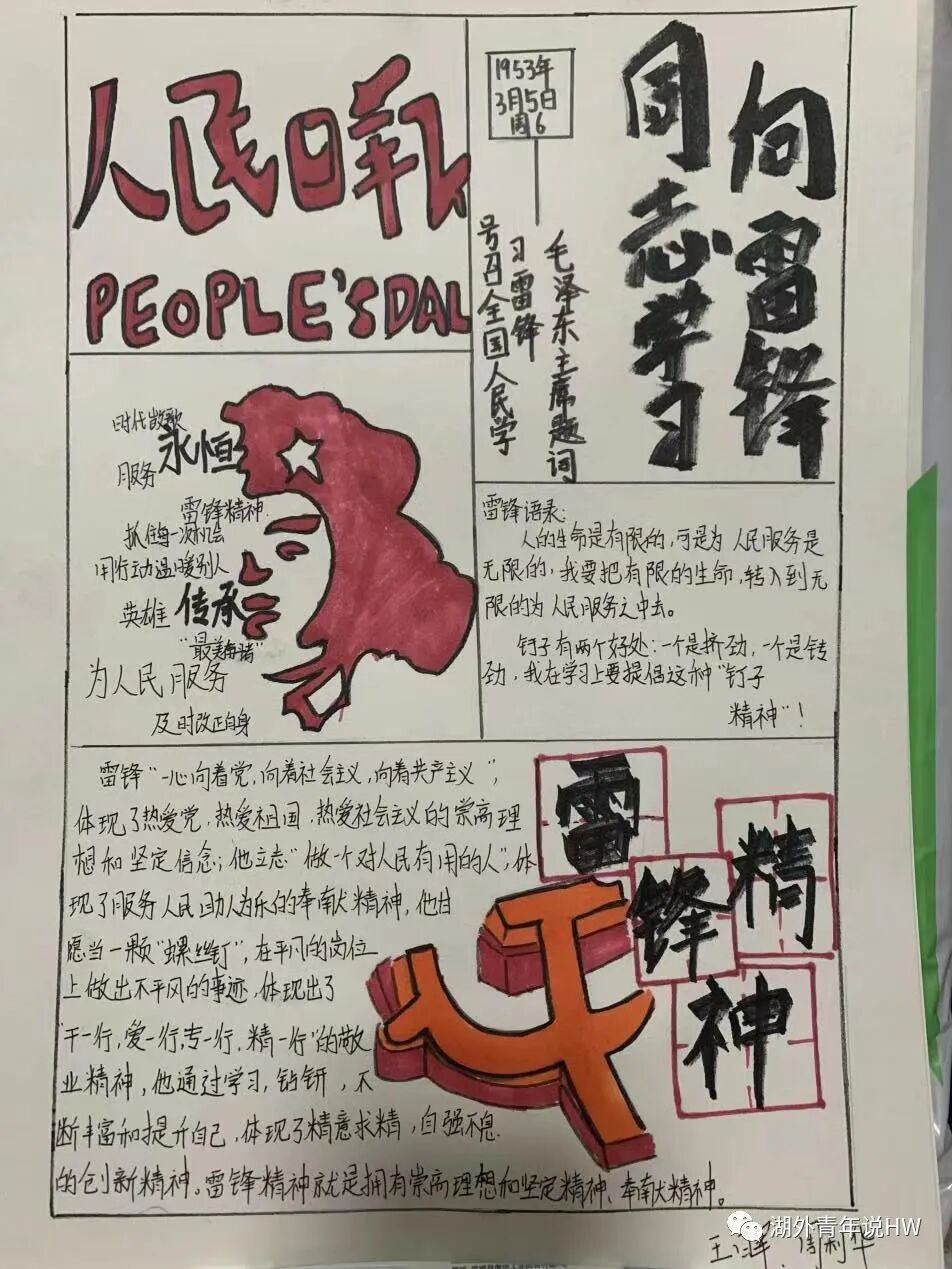 人民日报
PEOPLE'S DAI
1953年
3月5日
周6
毛泽东主席题词
号召全国人民学
习雷锋
向雷锋
同志学习
时代敬歌
服务 永恒
雷锋精神
抓住每一次机会
用行动温暖别人
英雄 传承
为人民服务
及时改正自身
雷锋语录:
人的生命是有限的,可是为人民服务是
无限的,我要把有限的生命,转入到无
限的为人民服务之中去。
钉子有两个好处:一个是挤劲,一个是钻
劲,我在学习上要提倡这种"钉子
精神"!
雷锋"一心向着党,向着社会主义,向着共产主义",
体现了热爱党,热爱祖国,热爱社会主义的崇高理
想和坚定信念;他立志"做一个对人民有用的人",体
现了服务人民助人为乐的奉献精神,他甘
愿当一颗"螺丝钉",在平凡的岗位
上做出不平风的事迹,体现出了
"干一行,爱一行,专一行,精一行"的敬
业精神,他通过学习,钻研,不
断丰富和提升自己,体现了精意求精,自强不息
的创新精神。雷锋精神就是拥有崇高理想和坚定精神、奉献精神。
雷
锋
精
神
湖外青年说HW